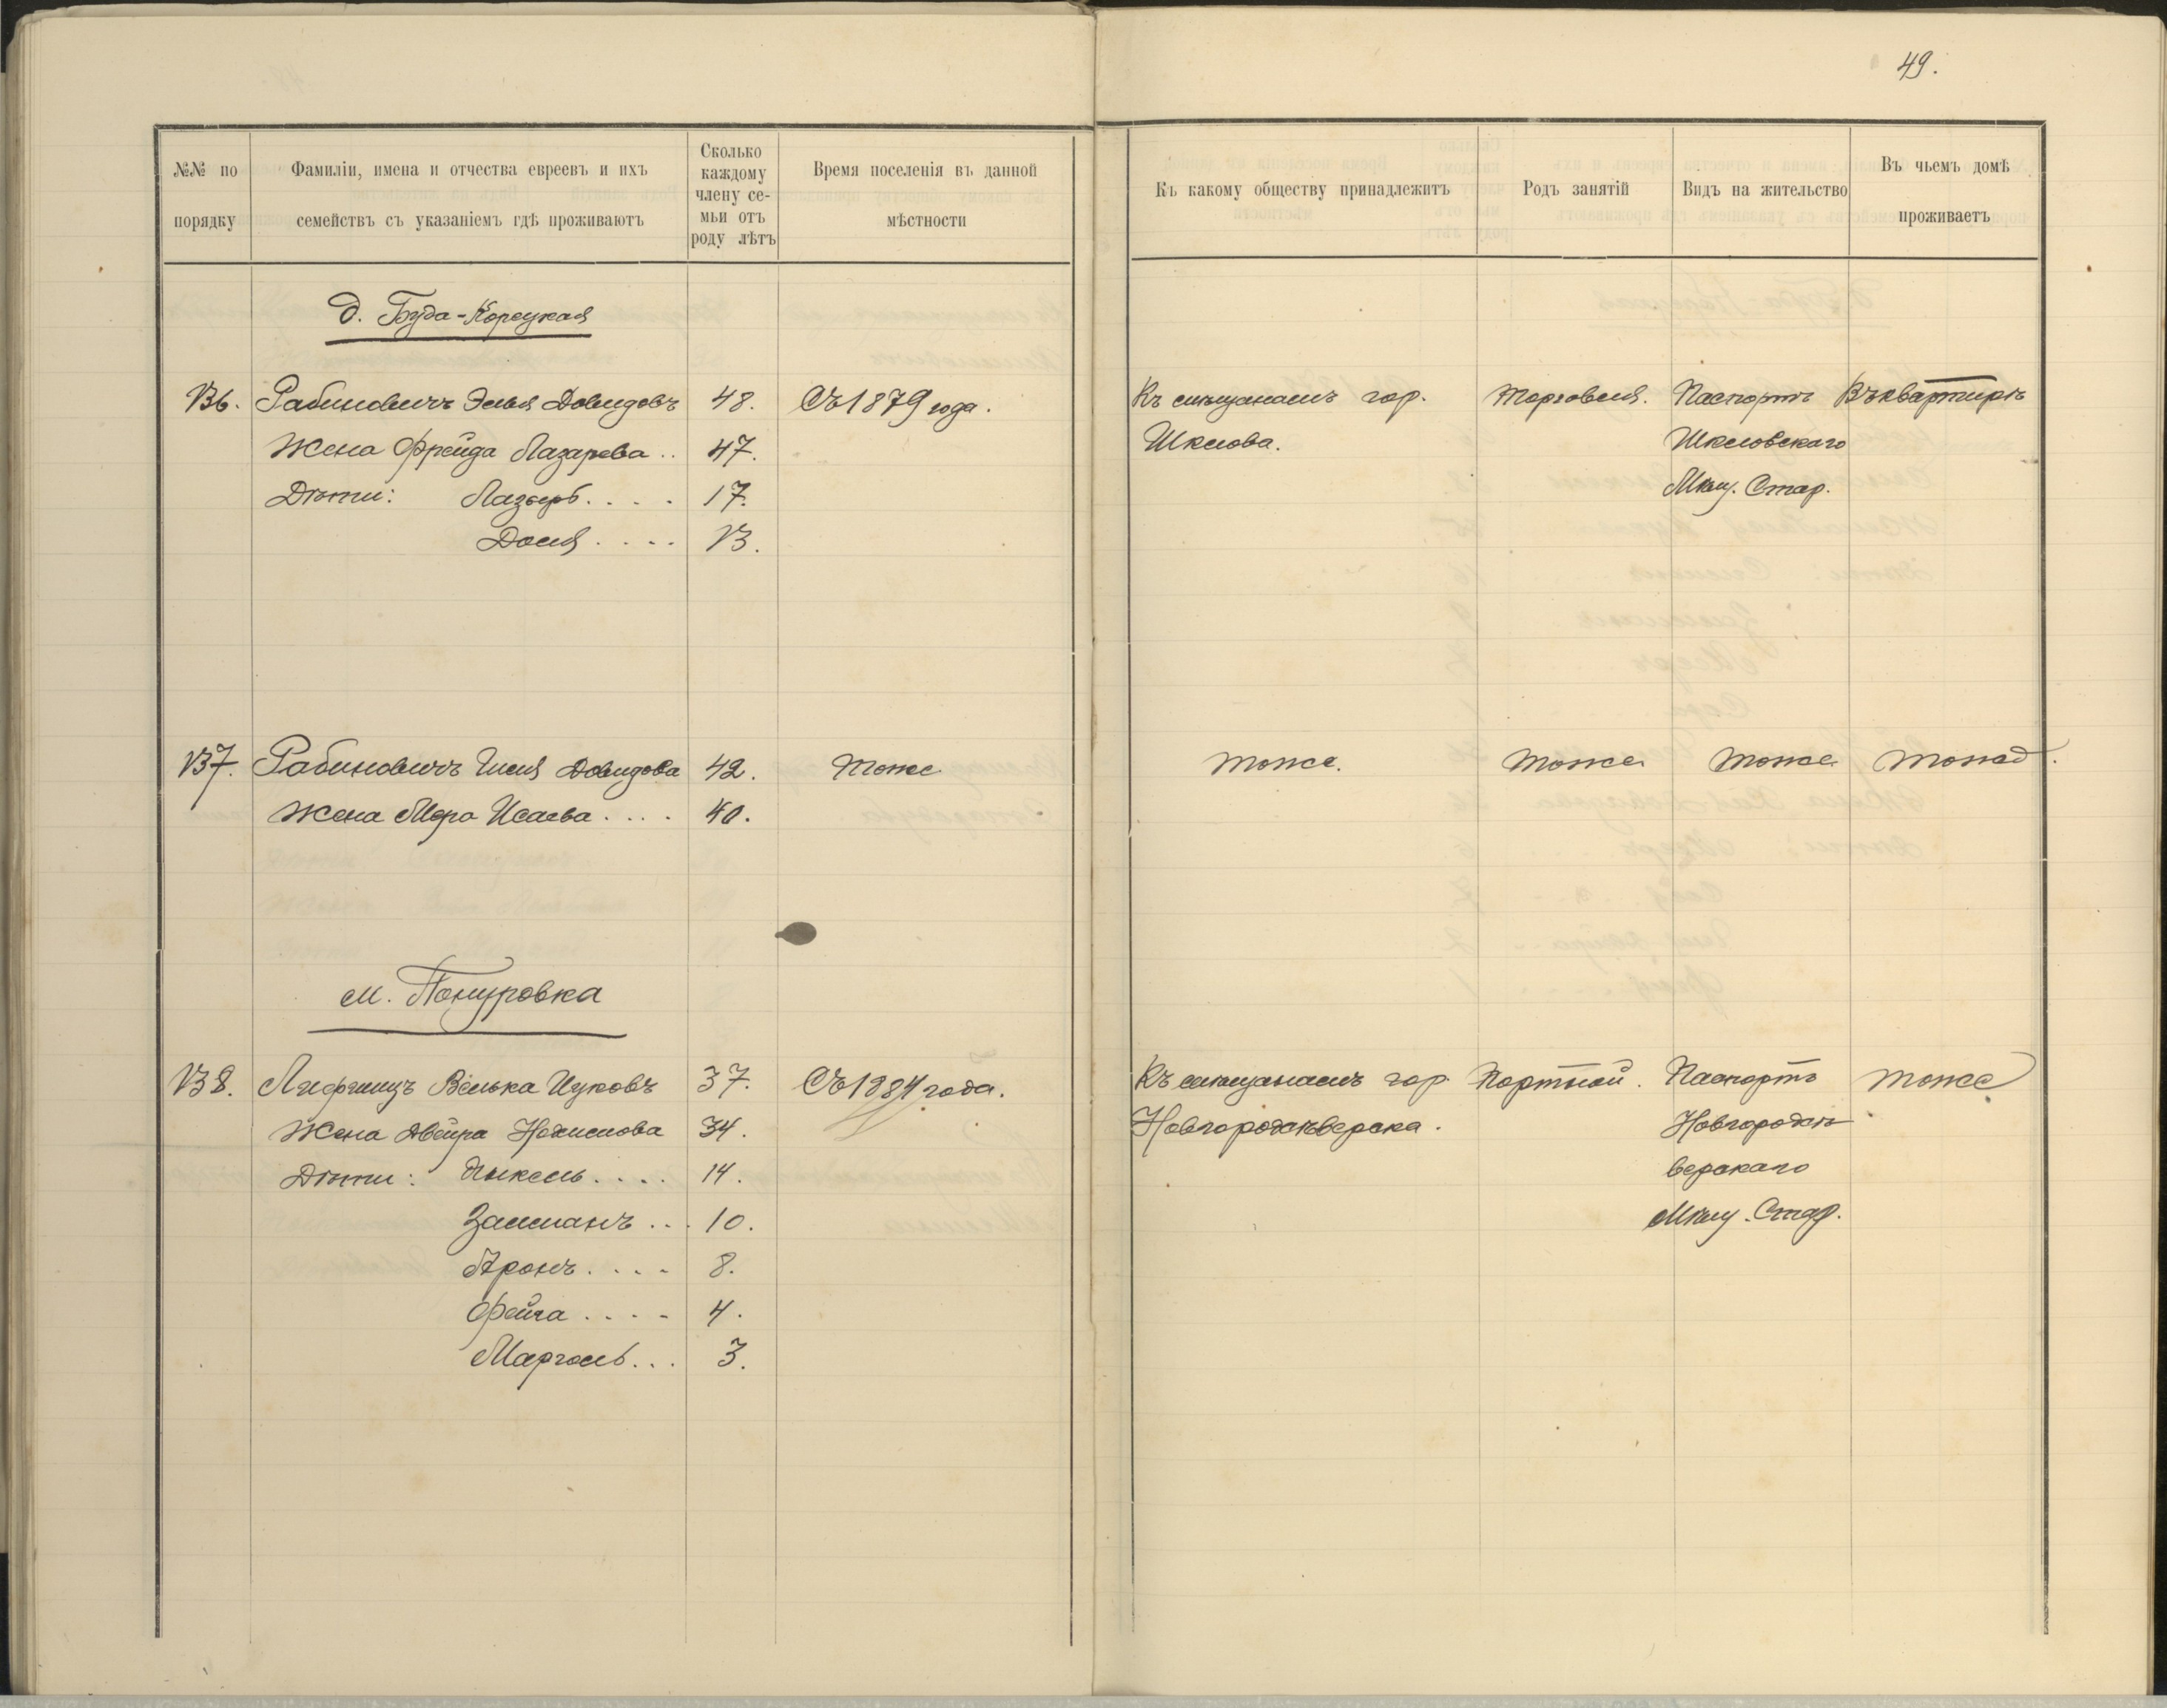 49.
№№ по порядку
Фамиліи, имена и отчества евреевъ и ихъ
семействъ съ указаніемъ гдѣ проживаютъ
Сколько
каждому
члену се-
мьи отъ
роду лѣтъ
Время поселенія въ данной
мѣстности
Къ какому обществу принадлежитъ
Родъ занятій
Видъ на жительство
Въ чьемъ домѣ
проживаетъ
д. Буда-Корецкая
136. Рабиновичъ Элья Довидовъ 48. Съ 1879 года. Къ мѣщанамъ гор. Торговля. Паспортъ Въ квартирѣ
Жена Фрейда Лазарева .. 47. Шклова. Шкловскаго
Дѣти: Лазарь . . . . 17. Мѣщ. Стар.
Доня . . . . 13.
137. Рабиновичъ Довидова 42. Тоже Тоже. Тоже Тоже Тоже.
Жена Мера Исаева . . . . 40.
м. Понуровка
138. Лифшицъ Вѣлька Ицковъ 37. Съ 1884 года. Къ мѣщанамъ гор. Портной. Паспортъ Тоже
Жена Двейра 34. Новгородсѣверска. Новгородсѣ-
Дѣти: . . . . 14. верскаго
Залманъ . . . 10. Мѣщ. Стар.
Аронъ . . . . 8.
Фейга . . . . 4.
. . . 3.